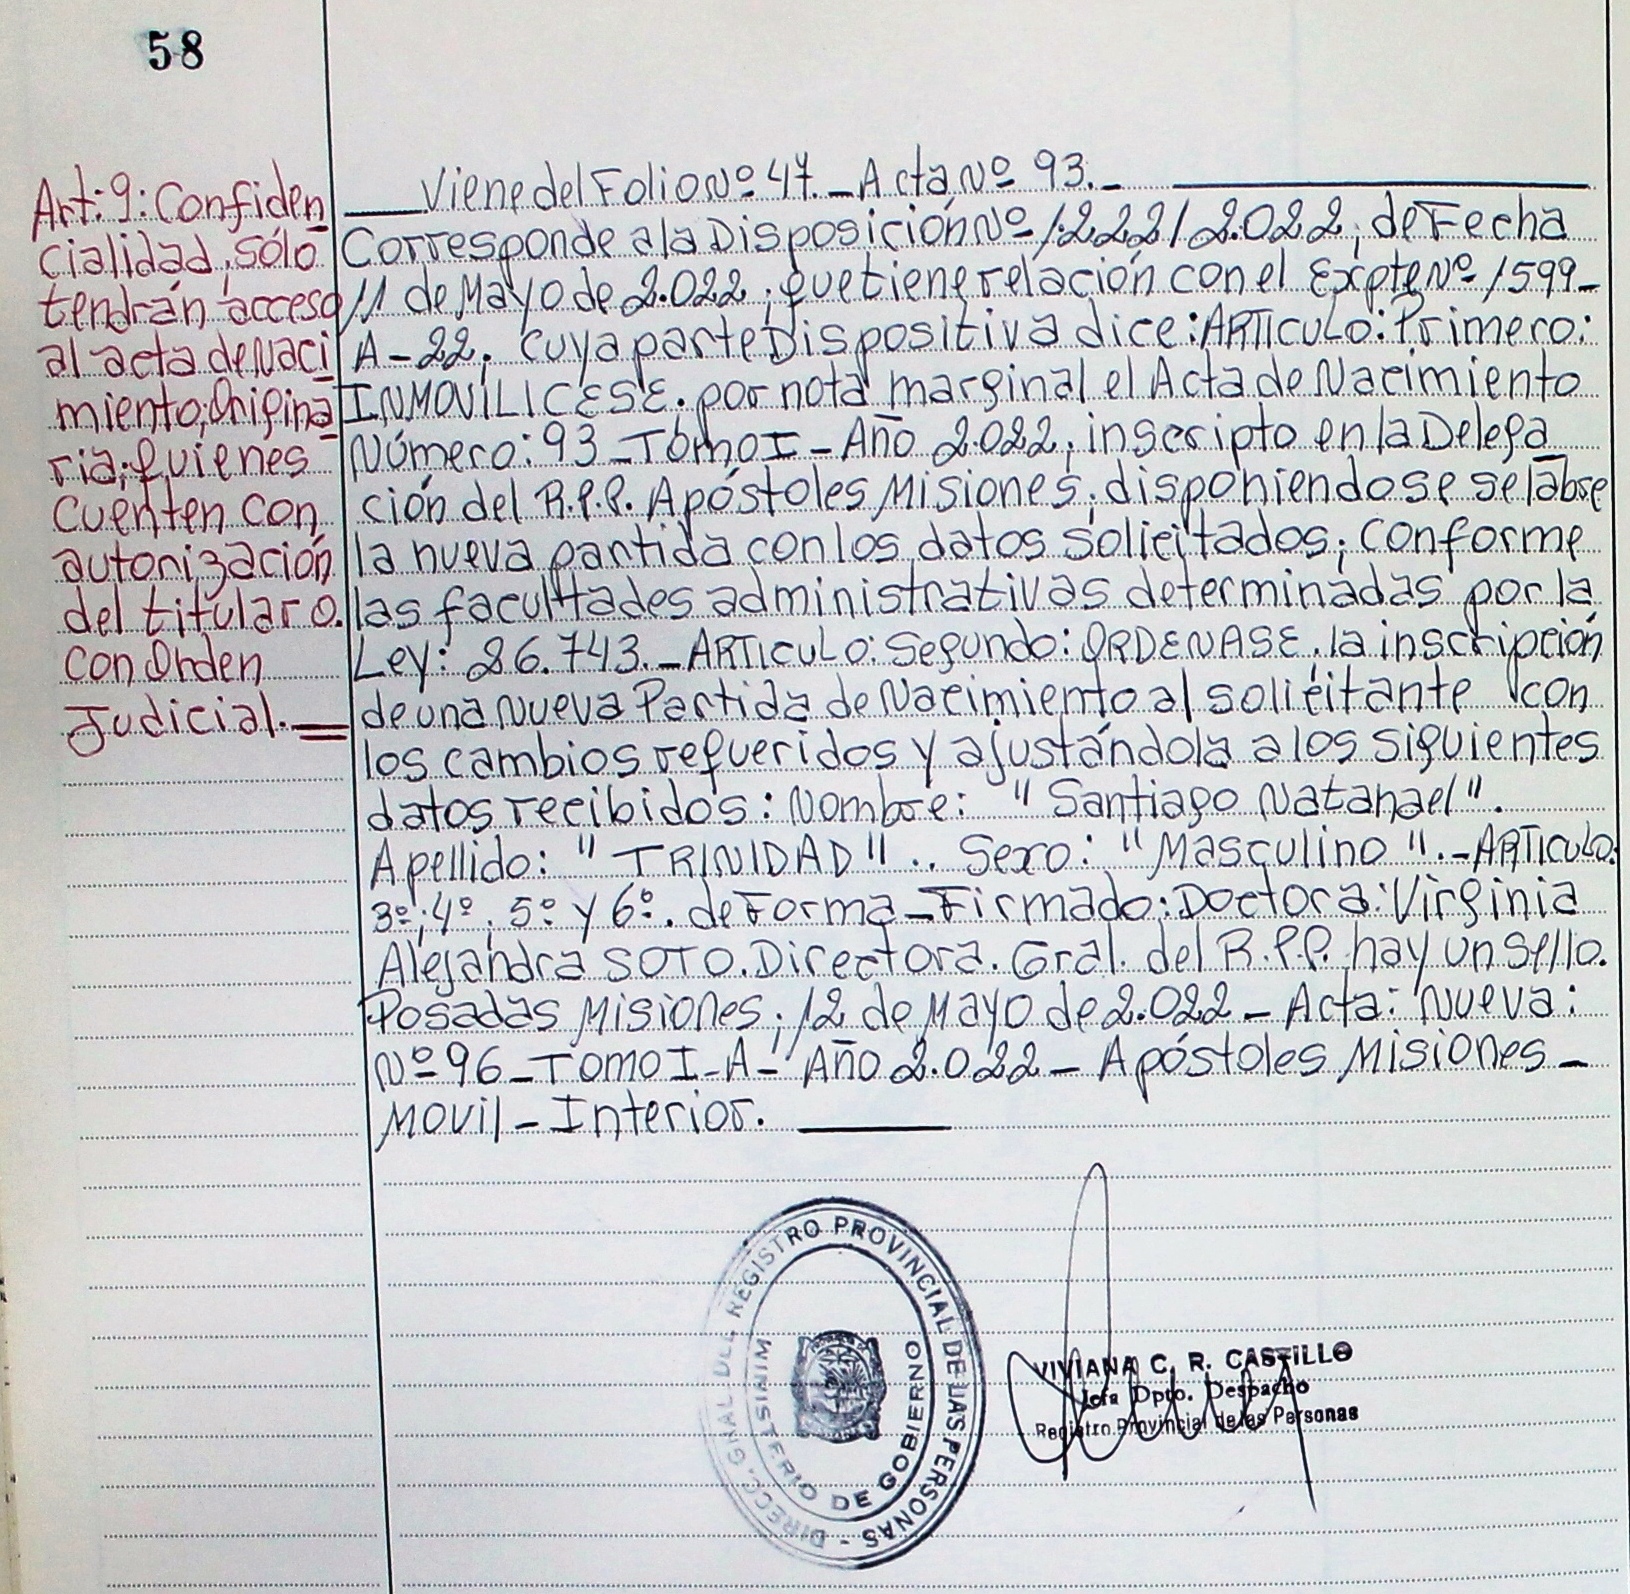 58
Art: 9: Confiden
cialidad, sólo
tendrán acceso
al acta de Naci
miento, Origina
ria; quienes
cuenten con
autorización
del titular o.
con Orden
Judicial.=
Viene del Folio Nº 47._Acta Nº 93._
Corresponde a la Disposición Nº 1.222/2.022, de Fecha
11 de Mayo de 2.022, que tiene relación con el Expte Nº 1599-
A-22, cuya parte Dispositiva dice: ARTICULO: Primero:
INMOVÍLICESE. por nota marginal el Acta de Nacimiento
Número: 93-Tomo I-Año 2.022, inscripto en la Delega
ción del R.P.P. Apóstoles Misiones, disponiendose se labre
la nueva partida con los datos solicitados; conforme
las facultades administrativas determinadas por la
Ley: 26.743._ARTICULO: Segundo: ORDENASE, la inscripción
de una Nueva Partida de Nacimiento al solicitante con
los cambios requeridos y ajustándola a los siguientes
datos recibidos: Nombre: "Santiago Natanael".
Apellido: "TRINIDAD".. Sexo: "Masculino".-ARTICULO.
3º; 4º, 5º y 6º. de Forma-Firmado: Doctora: Virginia
Alejandra SOTO. Directora. Gral. del R.P.P. hay un sello.
Posadas Misiones, 12 de Mayo de 2.022-Acta: Nueva:
Nº 96-Tomo I-A-Año 2.022-Apóstoles Misiones-
Movil-Interior.
DIRECC. GRAL DEL REGISTRO PROVINCIAL DE LAS PERSONAS -
MINISTERIO DE GOBIERNO
VIVIANA C. R. CASTILLO
Jefa Dpto. Despacho
Registro Provincial de las Personas